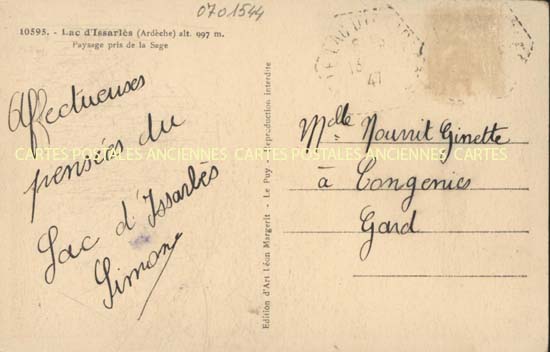 0701544
10595. - Lac d'Issarlès (Ardèche) alt. 997 m.
Paysage pris de la Sage
Affectueuses
pensées du
Lac d'Issarlès
Simone
Edition d'Art Léon Margerit - Le Puy - Reproduction interdite
47
Mlle Nourrit Ginette
à Congenies
Gard
CARTES POSTALES ANCIENNES CARTES POSTALES ANCIENNES CARTES